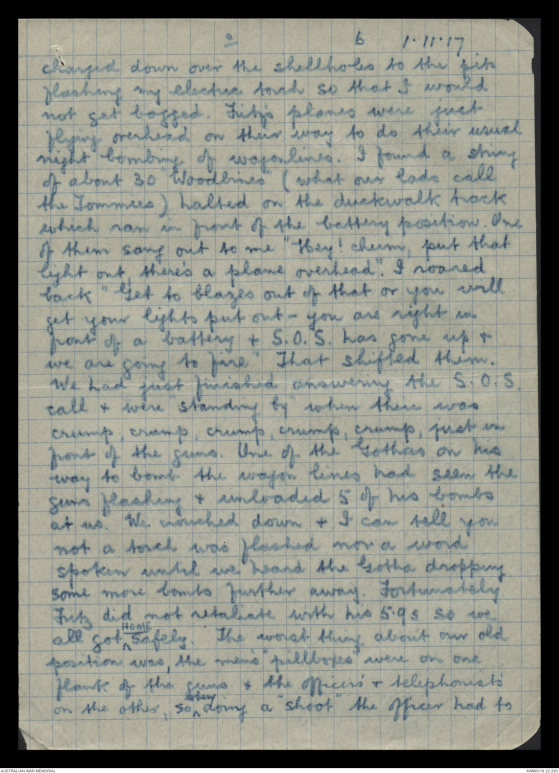 2 6 1.11.17
charged down over the shellholes to the pits
flashing my electric torch so that I would
not get bogged. Fritz's planes were just
flying overhead on their way to do their usual
night bombing of wagonlines. I found a string
of about 30 "Woodbines" (what our lads call
the Tommies) halted on the duckwalk track
which ran in front of the battery position. One
of them sang out to me "Hey! chum, put that
light out, there's a plane overhead". I roared
back "Get to blazes out of that or you will
get your lights put out - you are right in
front of a battery & S.O.S. has gone up &
we are going to fire" That shifted them.
We had just finished answering the S.O.S.
call & were standing by when there was
crump, crump, crump, crump, crump, just in
front of the guns. One of the Gothas on his
way to bomb the wagon lines had seen the
guns flashing & unloaded 5 of his bombs
at us. We crouched down & I can tell you
not a torch was flashed nor a word
spoken until we heard the Gotha dropping
some more bombs further away. Fortunately
Fritz did not retaliate with his 5.9s so we
all got HOME safely. The worst thing about our old
position was the men's "pillboxes" were on one
flank of the guns & the officers' & telephonists
on the other, so when doing a "shoot" the officer had to
AUSTRALIAN WAR MEMORIAL